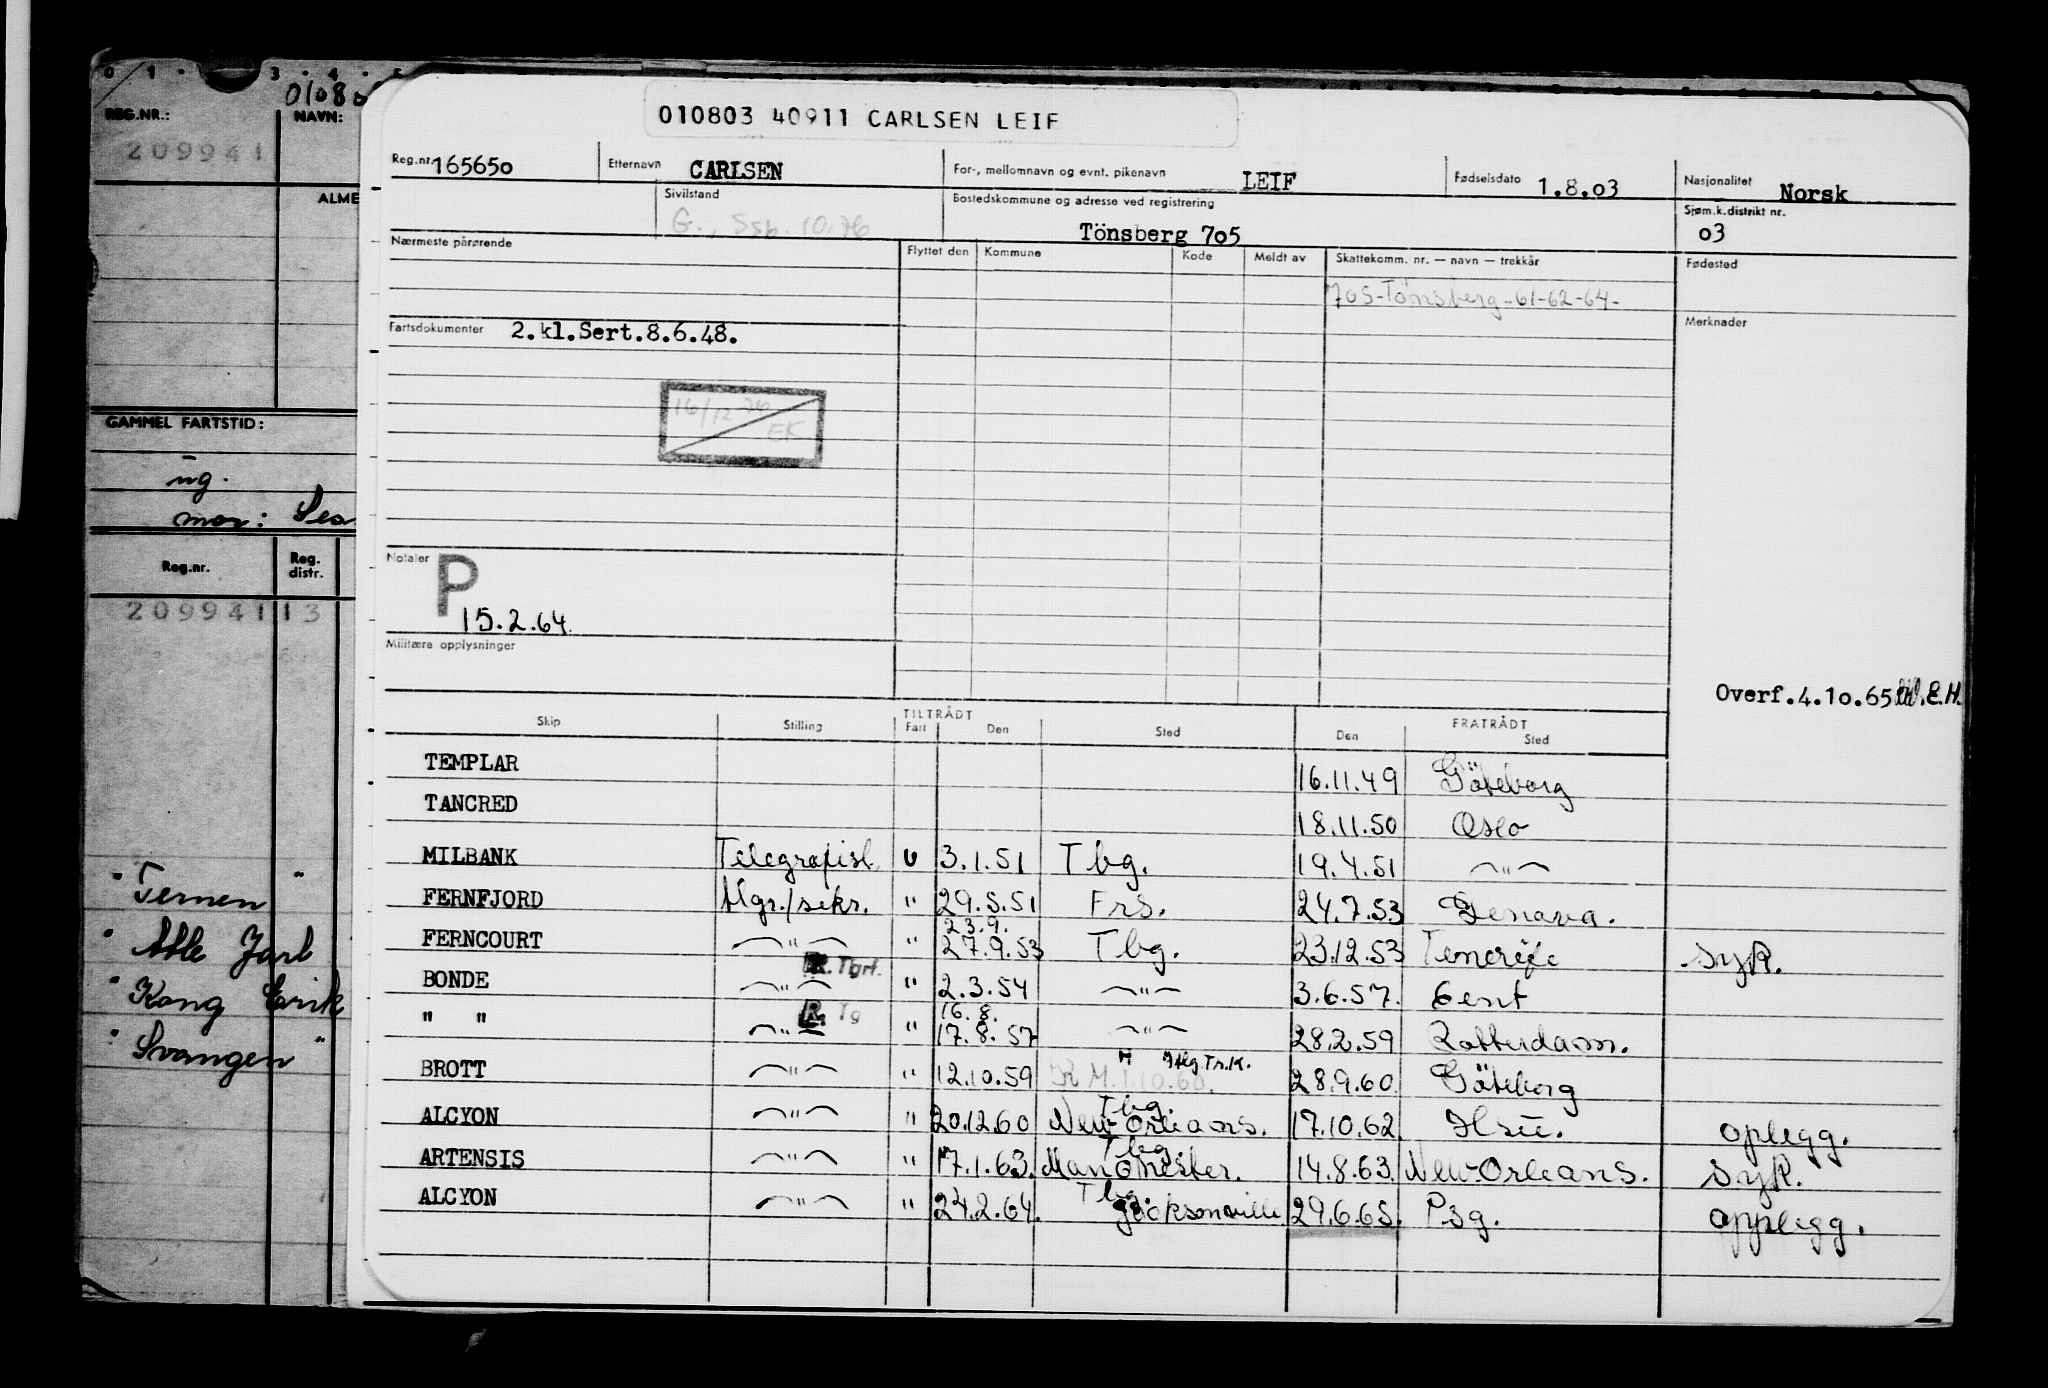 0 1 3 4 5
REG.NR.:
NAVN:
209941
ALME
GAMMEL FARTSTID:
ug.
mor:
Reg.nr.
Reg. distr.
209941 13
"Ternen"
"Atle Jarl
"Kong Eirik
"Svangen"
010803 40911 CARLSEN LEIF
Reg.nr. 165650 Etternavn CARLSEN For-, mellomnavn og evnt. pikenavn LEIF Fødselsdato 1.8.03 Nasjonalitet Norsk
Sivilstand G., Ssb. 10.76 Bostedskommune og adresse ved registrering Tönsberg 705 Sjøm.k.distrikt nr. 03
Nærmeste pårørende Flyttet den Kommune Kode Meldt av Skattekomm. nr. — navn — trekkår Fødested
705-Tönsberg-61-62-64-
Fartsdokumenter 2.kl.Sert.8.6.48. Merknader
16/12 76
EK
Notater P
15.2.64.
Militære opplysninger
Overf.4.10.65 E.H.
TILTRÅDT FRATRÅDT
Skip Stilling Fart Den Sted Den Sted
TEMPLAR 16.11.49 Göteborg
TANCRED 18.11.50 Oslo
MILBANK Telegrafist U 3.1.51 Tbg. 19.4.51 —"—
FERNFJORD tlgr./sekr. " 29.5.51 Frs. 24.7.53 Genova.
23.9.
FERNCOURT —"— " 27.9.53 Tbg. 23.12.53 Tenerife syk.
R. Tgrf.
BONDE —"— " 2.3.54 —"— 3.6.57. Gent
R. Tg 16.8.
" " —"— " 17.8.57 —"— 28.2.59 Rotterdam.
BROTT —"— " 12.10.59 R M.1.10.60. 28.9.60. Göteborg
Tbg.
ALCYON —"— " 20.12.60 New-Orleans. 17.10.62. oplegg.
Tbg.
ARTENSIS —"— " 17.1.63. Manchester. 14.8.63. New-Orleans. syk.
Tbg.
ALCYON —"— " 24.2.64. Jacksonville 29.6.65. Psg. opplegg.